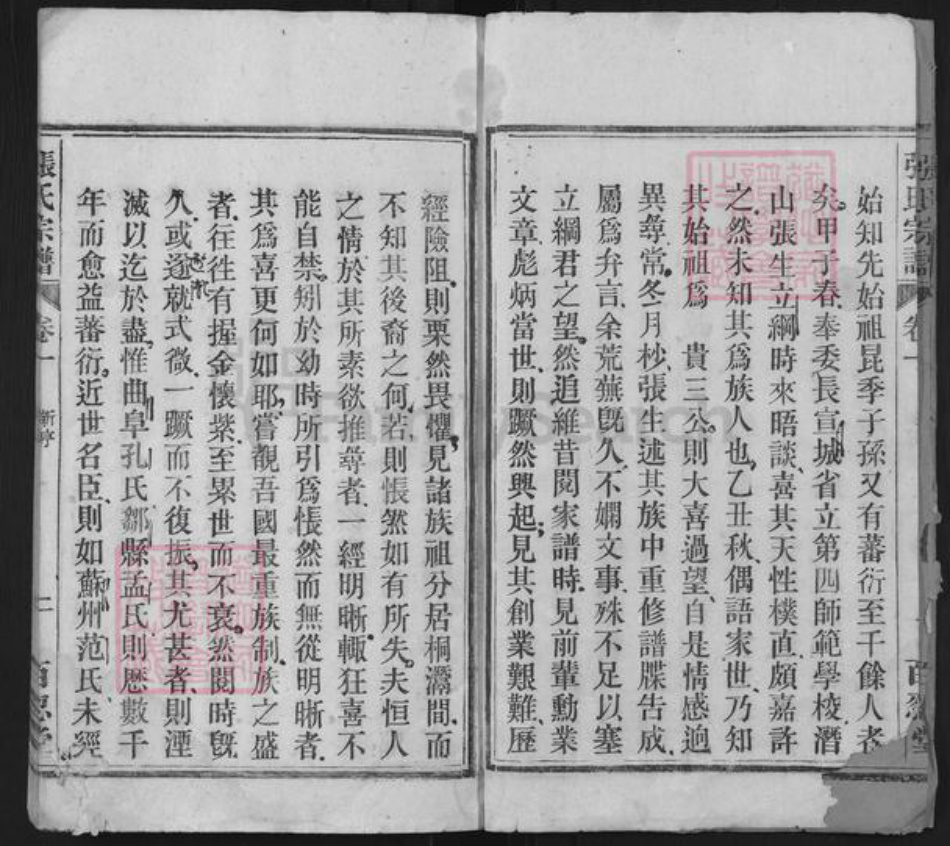 始知先始祖昆季子孫又有蕃衍至千餘人者
矣甲子春奉委長宣城省立第四師範學校潛
山張生立綱時來晤談喜其天性樸直頗嘉許
之然未知其爲族人也乙丑秋偶語家世乃知
其始祖爲　貴三公則大喜過望自是情感逈
異尋常冬月杪張生述其族中重修譜牒告成
屬爲弁言余荒蕪旣久不嫻文事殊不足以塞
立綱君之望然追維昔閱家譜時見前輩勳業
文章彪炳當世則蹶然興起見其創業艱難歷
經險阻則栗然畏懼見諸族祖分居桐灊間而
不知其後裔之何若則悵然如有所失夫恒人
之情於其所素欲推尋者一經明晰輒狂喜不
能自禁矧於幼時所引爲悵然而無從明晰者
其爲喜更何如耶嘗觀吾國最重族制族之盛
者往往有握金懷紫至累世而不衰然閱時旣
久或遂就式微一蹶而不復振其尤甚者則湮
滅以迄於盡惟曲阜孔氏鄒縣孟氏則歷數千
年而愈益蕃衍近世名臣則如蘇州范氏未經
張氏宗譜
卷一
新序
二
百忍堂